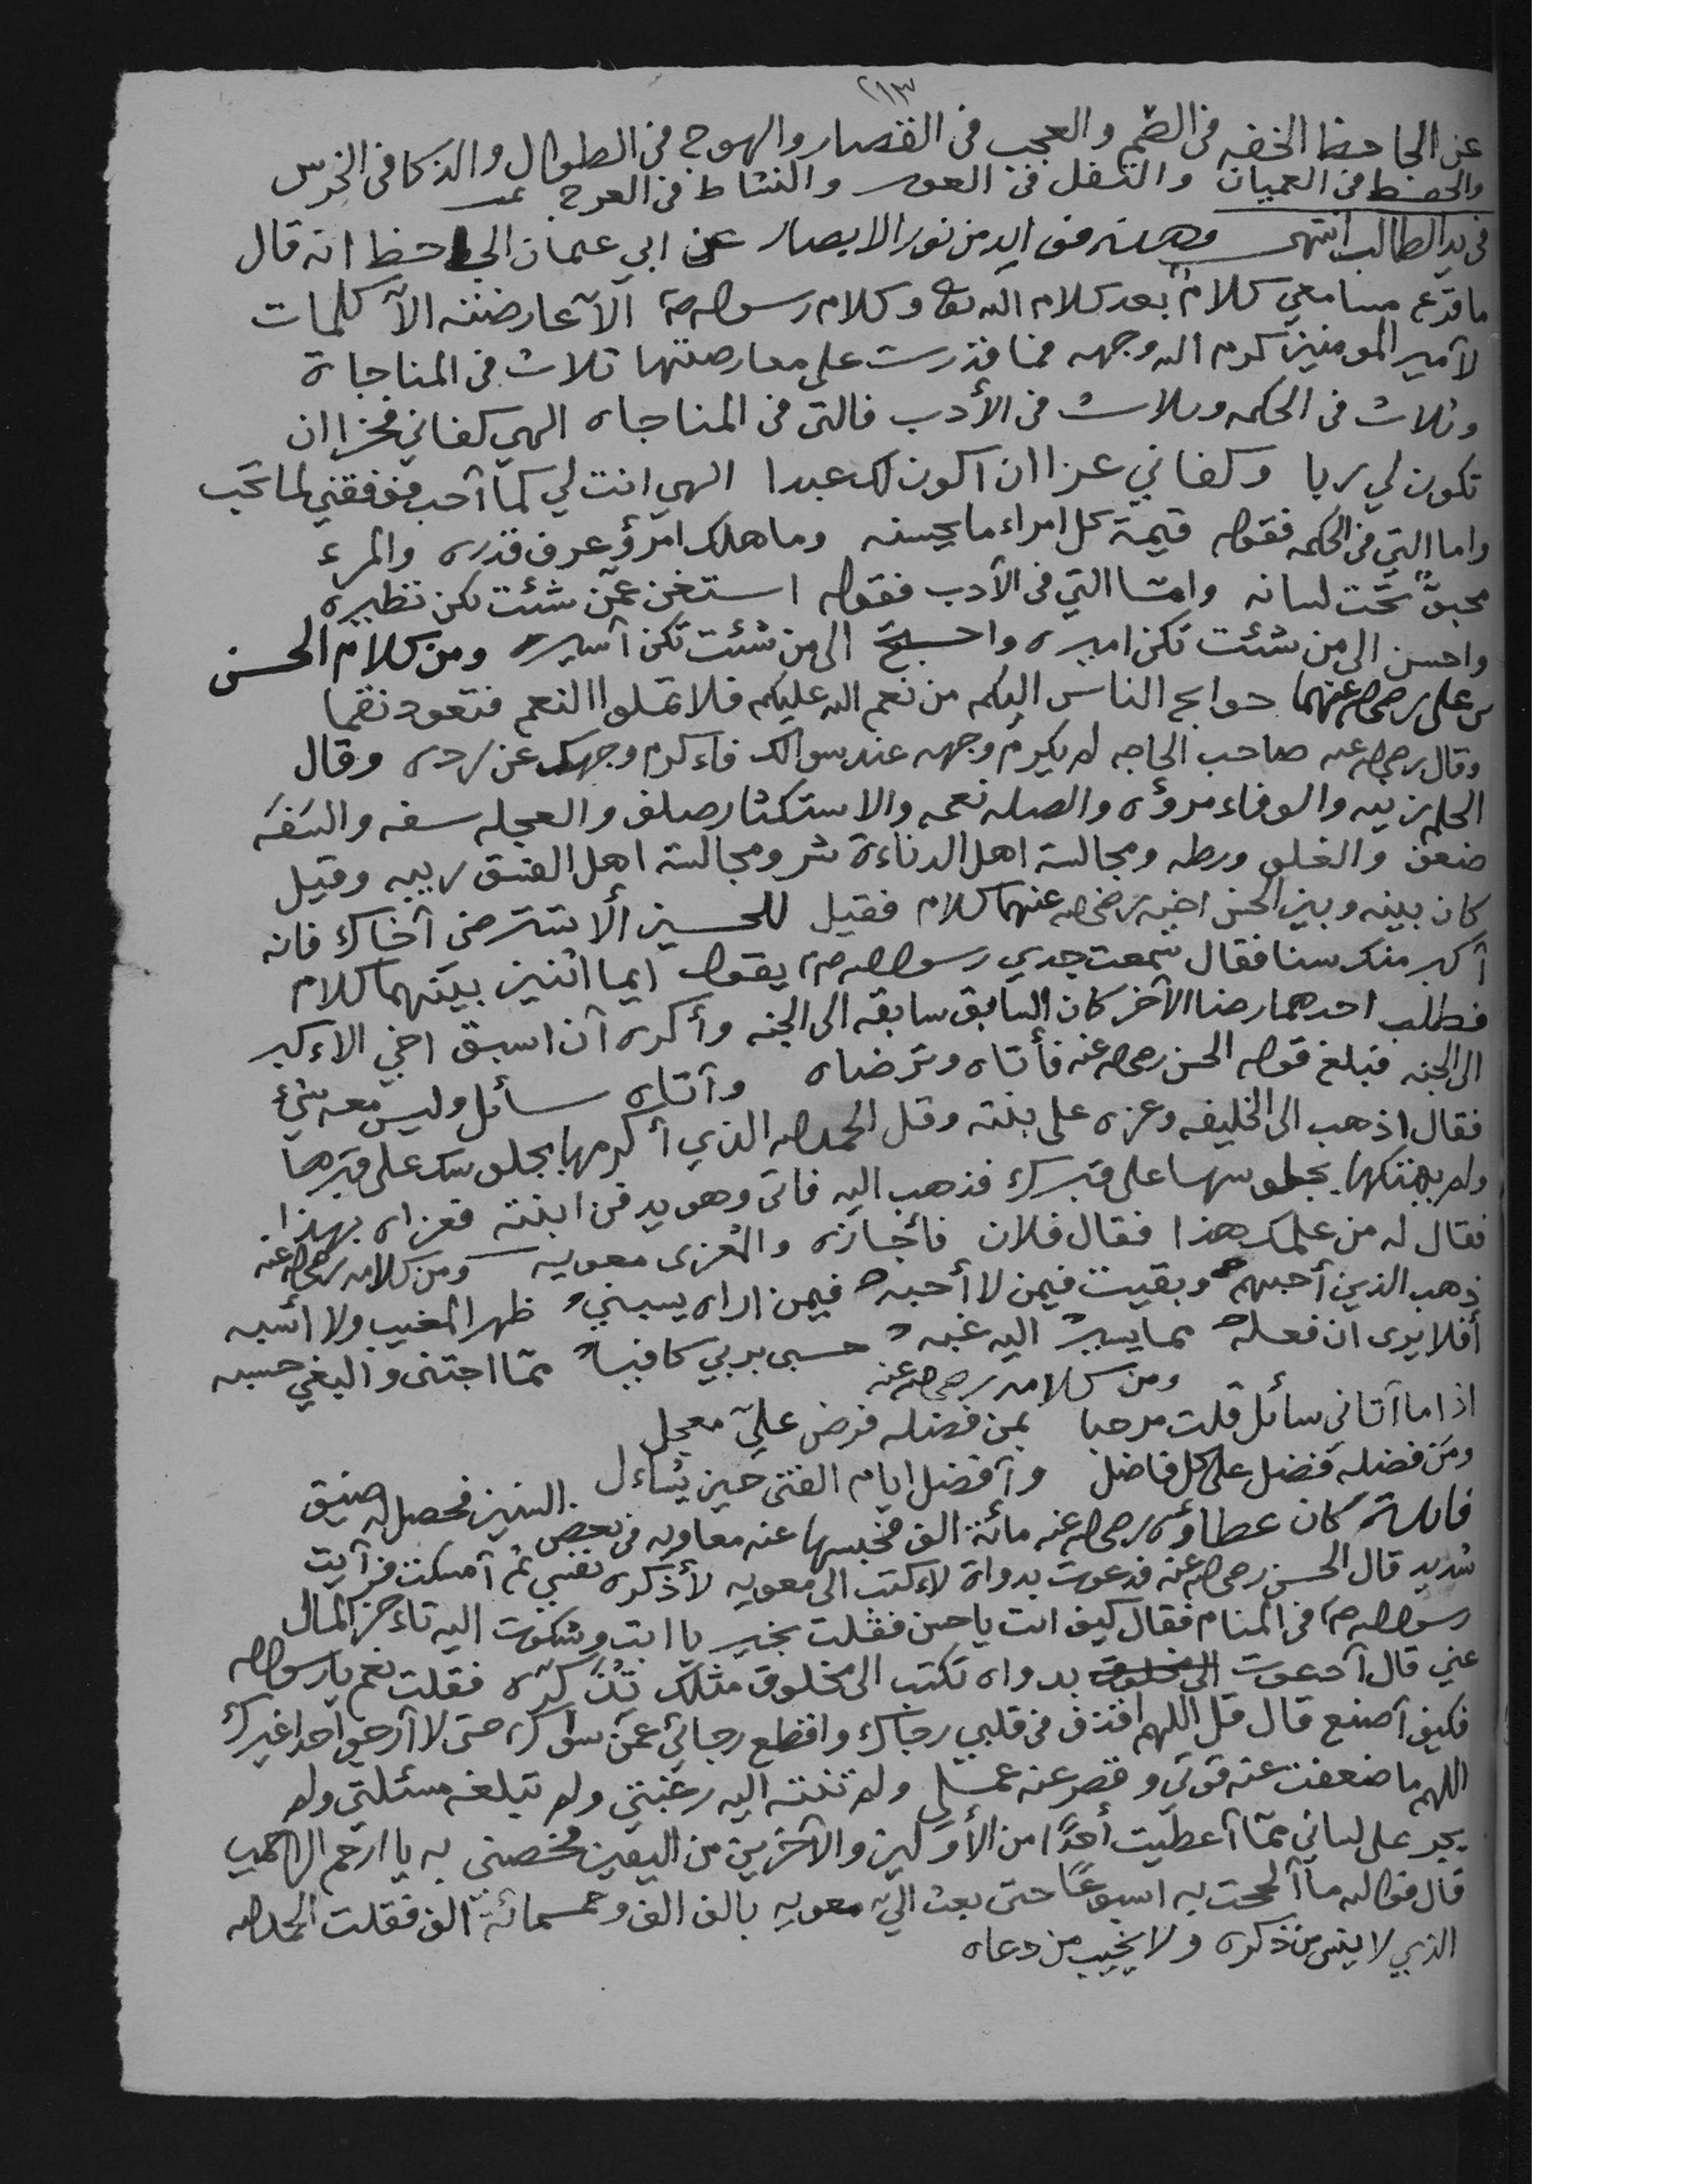 ٢١٣
عن الجاحظ الخفه فى الصم والعجب فى القصار والهوج فى الطوال والذكا فى الخرس
والحفظ فى العميان والثقل فى العور والنشاط فى العرج
فى يد الطالب انتهى وهذه فوايد من نور الابصار عن ابي عثمان الجاحظ انه قال
ما قرع مسامعي كلام بعد كلام الله تع وكلام رسوله ص الآ عارضته الآ كلمات
لآمير المومنين كرم الله وجهه فما قدرت على معارضتها ثلاث فى المناجاة
وثلاث فى الحكمه وثلاث فى الأدب فالتى فى المناجاه الهي كفاني فخرا ان
تكون لي ربا وكفاني عزا ان اكون لك عبدا الهي انت لي كما آحب فوفقني لما تحب
واما التي فى الحكمه فقوله قيمة كل امراء ما يحسنه وما هلك امرؤ عرف قدره والمرء
مخبؤ تحت لسانه وامّا التي فى الآدب فقوله استغن عمّن شئت تكن نظيره
واحسن الى من شئت تكن اميره واحتج الى من شئت تكن آسيره ومن كلام الحسن
بن على رضى الله عنهما حوايج الناس اليكم من نعم الله عليكم فلا تملوا النعم فتعود نقما
وقال رضى الله عنه صاحب الحاجه لم يكرم وجهه عند سوالك فاءكرم وجهك عن رده وقال
الحلم زينه والوفاء مروءه والصله نعمه والاستكثار صلف والعجله سفه والسَفَه
ضعف والغلو ورطه ومجالسة اهل الدناءة شر ومجالسة اهل الفسق ريبه وقيل
كان بينه وبين الحسن اخيه رضى الله عنهما كلام فقيل للحسين ألا تترضى آخاك فانه
آكبر منك سنا فقال سمعت جدي رسول الله ص يقول ايما اثنين بينهما كلام
فطلب احدهما رضا الآخر كان السابق سابقه الى الجنه وأكره آن اسبق اخي الاءكبر
الى الجنه فبلغ قوله الحسن رضى الله عنه فأتاه وترضاه وآتاه سائل وليس معه شئ
فقال اذهب الى الخليفه وعزه على بنته وقل الحمد لله الذي أكرمها بجلوسك على قبرها
ولم يهتكها بجلوسها على قبرك فذهب اليه فاتى وهو يدفن ابنته فعزاه بهذا
فقال له من علمك هذا فقال فلان فأجازه والمُعزى معويه ومن كلامه رضى الله عنه
ذهب الذين أحبهم وبقيت فيمن لا أحبه فيمن اراه يسبني ظهر المغيب ولا اسّبه
أفلا يرى ان فعله مما يسير اليه غبه حسبى بربي كافيا ممّا اجتنى والبغي حسبه
ومن كلامه رضى الله عنه
اذا ما آتاني سائل قلت مرحبا بمن فضله فرض عليّ معجل
ومَن فضله فضل على كل فاضل وآفضل ايام الفتى حين يُساءل
فائدة كان عطاؤه رضى الله عنه مائة الف فحبسها عنه معاويه فى بعض السنين فحصل له ضيق
شديد قال الحسن رضى الله عنه فدعوت بدواة لاءكتب الى معويه لأذكره نفسي ثم آمسكت فرآيت
رسول الله ص فى المنام فقال كيف انت يا حسن فقلت بخير يا ابتِ وشكوت اليه تاءخر المال
عني قال آدعوت بدواه تكتب الى مخلوق مثلك تذكّره فقلت نعم يا رسول الله
فكيف آصنع قال قل اللهم اقذف فى قلبي رجاك واقطع رجائي عمّن سواك حتى لا آرجو احدا غيرك
اللهم ما ضعفت عنه قوتي وقصر عنه عملي ولم تنته اليه رغبتي ولم تبلغه مسئلتي ولم
يجر على لساني ممّا آعطيت أحدًا من الأوّلين والآخرين من اليقين فخصني به يا ارحم الراحمين
قال فوالله ما آلححت به اسبوعًا حتى بعث اليّ معويه بالف الف وخمسمائة الف فقلت الحمد لله
الذي لا ينسى من ذكره ولا يخيب من دعاه